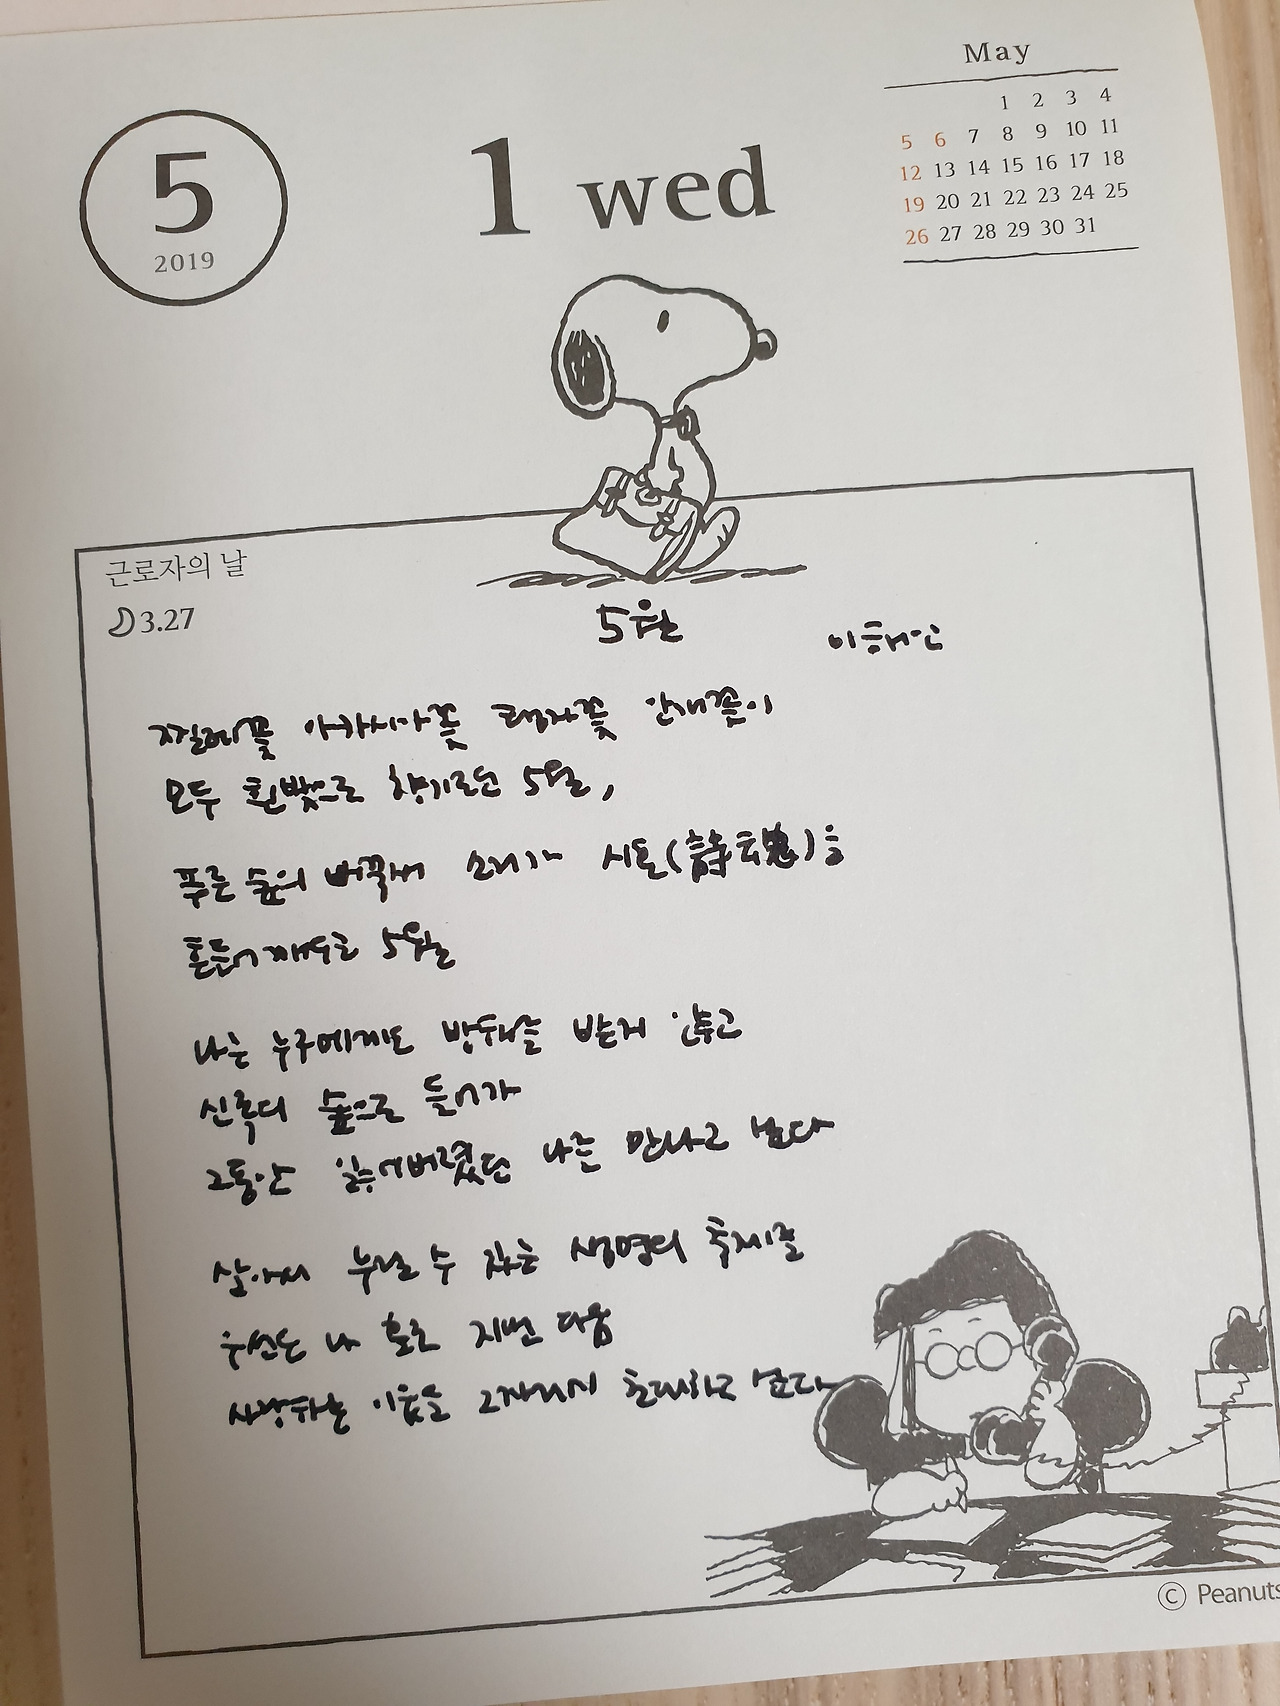 May
1 2 3 4
5 6 7 8 9 10 11
12 13 14 15 16 17 18
19 20 21 22 23 24 25
26 27 28 29 30 31
5
2019
1 wed
근로자의 날
3.27
5월
이해인
찔레꽃 아카시아꽃 탱자꽃 안개꽃이
모두 흰빛으로 향기로운 5월,
푸른 숲의 뻐꾹새 소리가 시혼(詩魂)을
흔들어 깨우는 5월
나는 누구에게도 방해를 받게 않고
신록의 숲으로 들어가
그동안 잃어버렸던 나를 만나고 싶다
살아서 누릴 수 있는 생명의 축제를
우선은 나 홀로 지낸 다음
사랑하는 이웃을 그 자리에 초대하고 싶다
© Peanuts